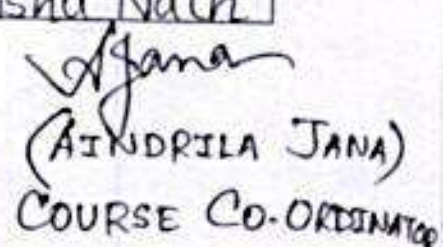 Nath
AJana
(AINDRILA JANA)
COURSE CO-ORDINATOR